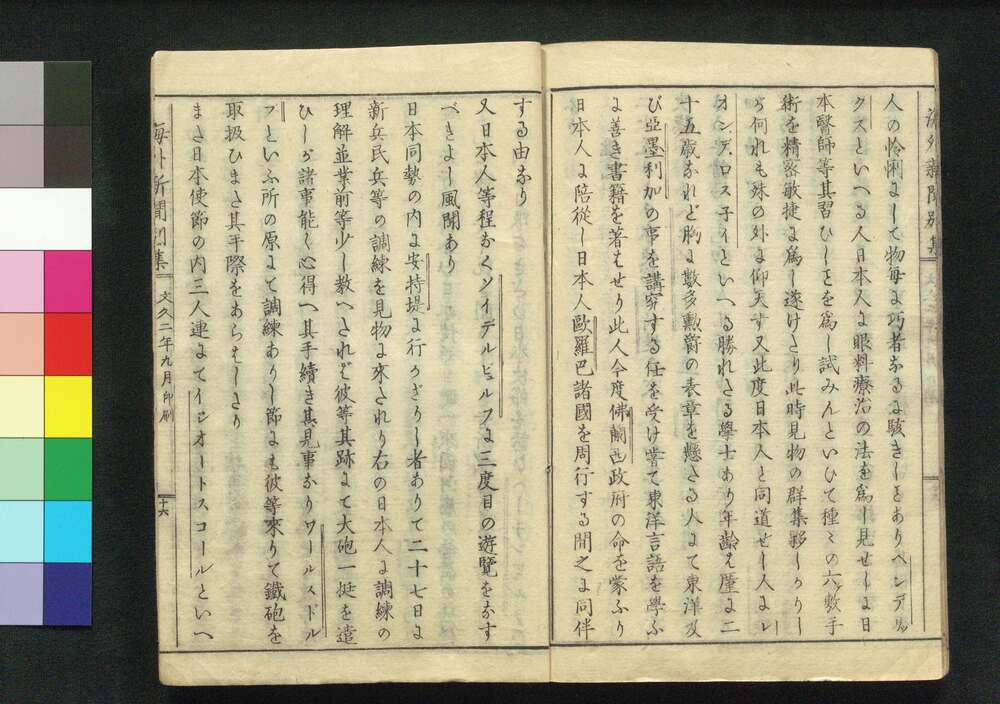 海外新聞別集
人の怜悧にして物毎に巧者なるに駭きしとありヘンデリッ
クスといへる人日本人に眼科療治の法を為し見せしに日
本醫師等其習ひしことを為し試みんといひて種々の六ヶ敷手
術を精密敏捷に為し遂けたり此時見物の群集夥しかりし
が何れも殊の外に仰天す又此度日本人と同道せし人にレ
オン、デロスネイといへる勝れたる學士あり年齢は厪に二
十五歳なれど胸に數多勲爵の表章を懸たる人にて東洋及
び亞墨利加の事を講究する任を受け嘗て東洋言語を學ふ
に善き書籍を著はせり此人今度佛蘭西政府の命を蒙ふり
日本人に陪從し日本人歐羅巴諸國を周行する間之に同伴
する由なり
又日本人等程なくソイデルビュルフに三度目の遊覧をなす
べきよし風聞あり
日本同勢の内に安特堤に行かざりし者ありて二十七日に
新兵民兵等の調練を見物に來されり右の日本人に調練の
理解並業前等少し教へたれば彼等其跡にて大砲一挺を遣
ひしが諸事能く心得へ其手續き其見事なりワールスドル
プといふ所の原にて調練ありし節にも彼等來りて鐵砲を
取扱ひまた其手際をあらはしたり
また日本使節の内三人連にてインシオートスコールといへ
海外新聞別集
文久二年九月印刷
十六